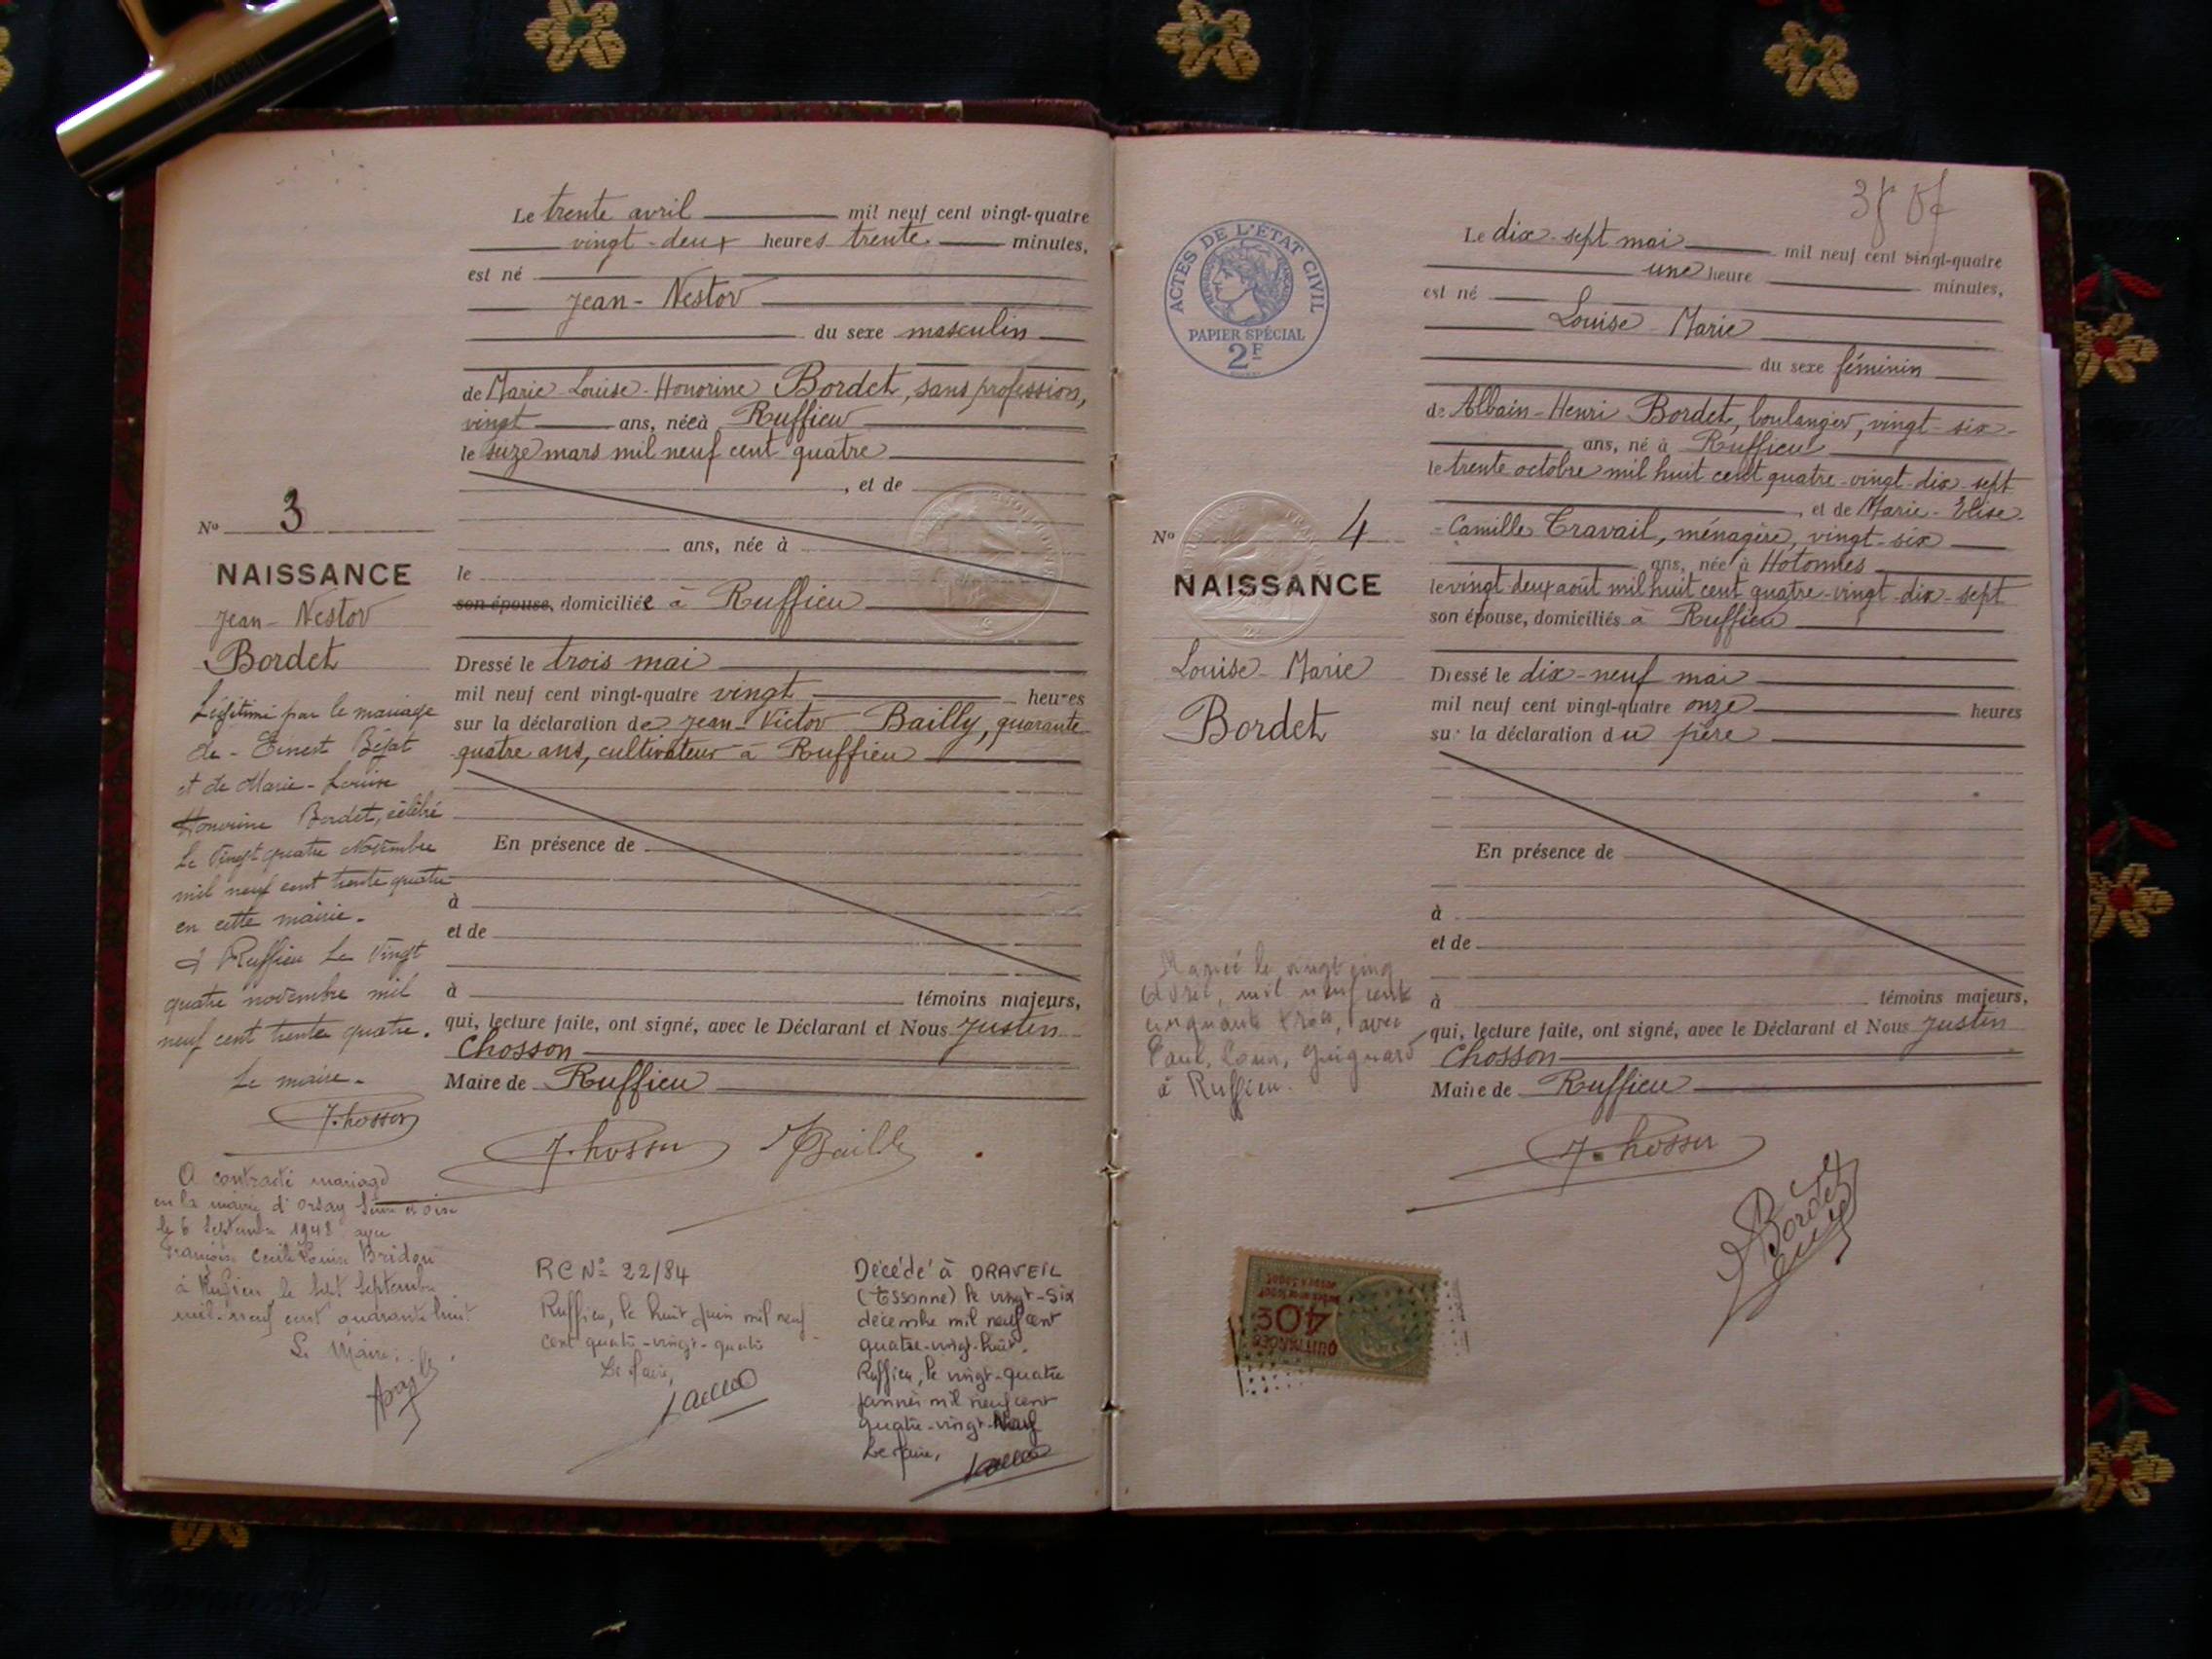 Le trente avril mil neuf cent vingt-quatre
vingt-deux heures trente minutes,
est né
Jean-Nestor
du sexe masculin
de Marie-Louise-Honorine Bordet, sans profession,
vingt ans, née à Ruffieu
le seize mars mil neuf cent quatre
, et de
ans, née à
le
son épouse, domiciliée à Ruffieu
Dressé le trois mai
mil neuf cent vingt-quatre vingt heures
sur la déclaration de Jean-Victor Bailly, quarante
quatre ans, cultivateur à Ruffieu
En présence de
à
et de
à témoins majeurs,
qui, lecture faite, ont signé, avec le Déclarant et Nous Justin
Chosson
Maire de Ruffieu
J. Chosson Bailly
No 3
NAISSANCE
Jean-Nestor
Bordet
Légitimé par le mariage
de Ernest
et de Marie-Louise
Honorine Bordet, célébré
Le vingt quatre Novembre
mil neuf cent trente quatre
en cette mairie.
à Ruffieu Le vingt
quatre novembre mil
neuf cent trente quatre.
Le maire.
J. Chosson
A contracté mariage
en la mairie d'Orsay Seine et Oise
le 6 Septembre 1948 avec
Cécile Louise
à Ruffieu le sept Septembre
mil-neuf cent quarante huit
Le Maire,
RC No 22/84
Ruffieu, le huit juin mil neuf
cent quatre-vingt-quatre
Le Maire,
Décédé à DRAVEIL
(Essonne) le vingt-six
décembre mil neuf cent
quatre-vingt-huit.
Ruffieu, le vingt-quatre
janvier mil neuf cent
quatre-vingt-neuf
Le Maire,
ACTES DE L'ÉTAT CIVIL
PAPIER SPÉCIAL
2F
Le dix-sept mai mil neuf cent vingt-quatre
une heure minutes,
est né
Louise-Marie
du sexe féminin
de Albain-Henri Bordet, boulanger, vingt-six
ans, né à Ruffieu
le trente octobre mil huit cent quatre-vingt-dix-sept
, et de Marie-Elise-
-Camille Travail, ménagère, vingt-six
ans, née à Hotonnes
le vingt deux août mil huit cent quatre-vingt-dix-sept
son épouse, domiciliés à Ruffieu
Dressé le dix-neuf mai
mil neuf cent vingt-quatre onze heures
sur la déclaration du père
En présence de
à
et de
à témoins majeurs,
qui, lecture faite, ont signé, avec le Déclarant et Nous Justin
Chosson
Maire de Ruffieu
J. Chosson
Bordet
No 4
NAISSANCE
Louise-Marie
Bordet
Mariée le vingt cinq
Avril, mil neuf cent
cinquante trois, avec
Paul, Guignard
à Ruffieu.
QUITTANCES
40c